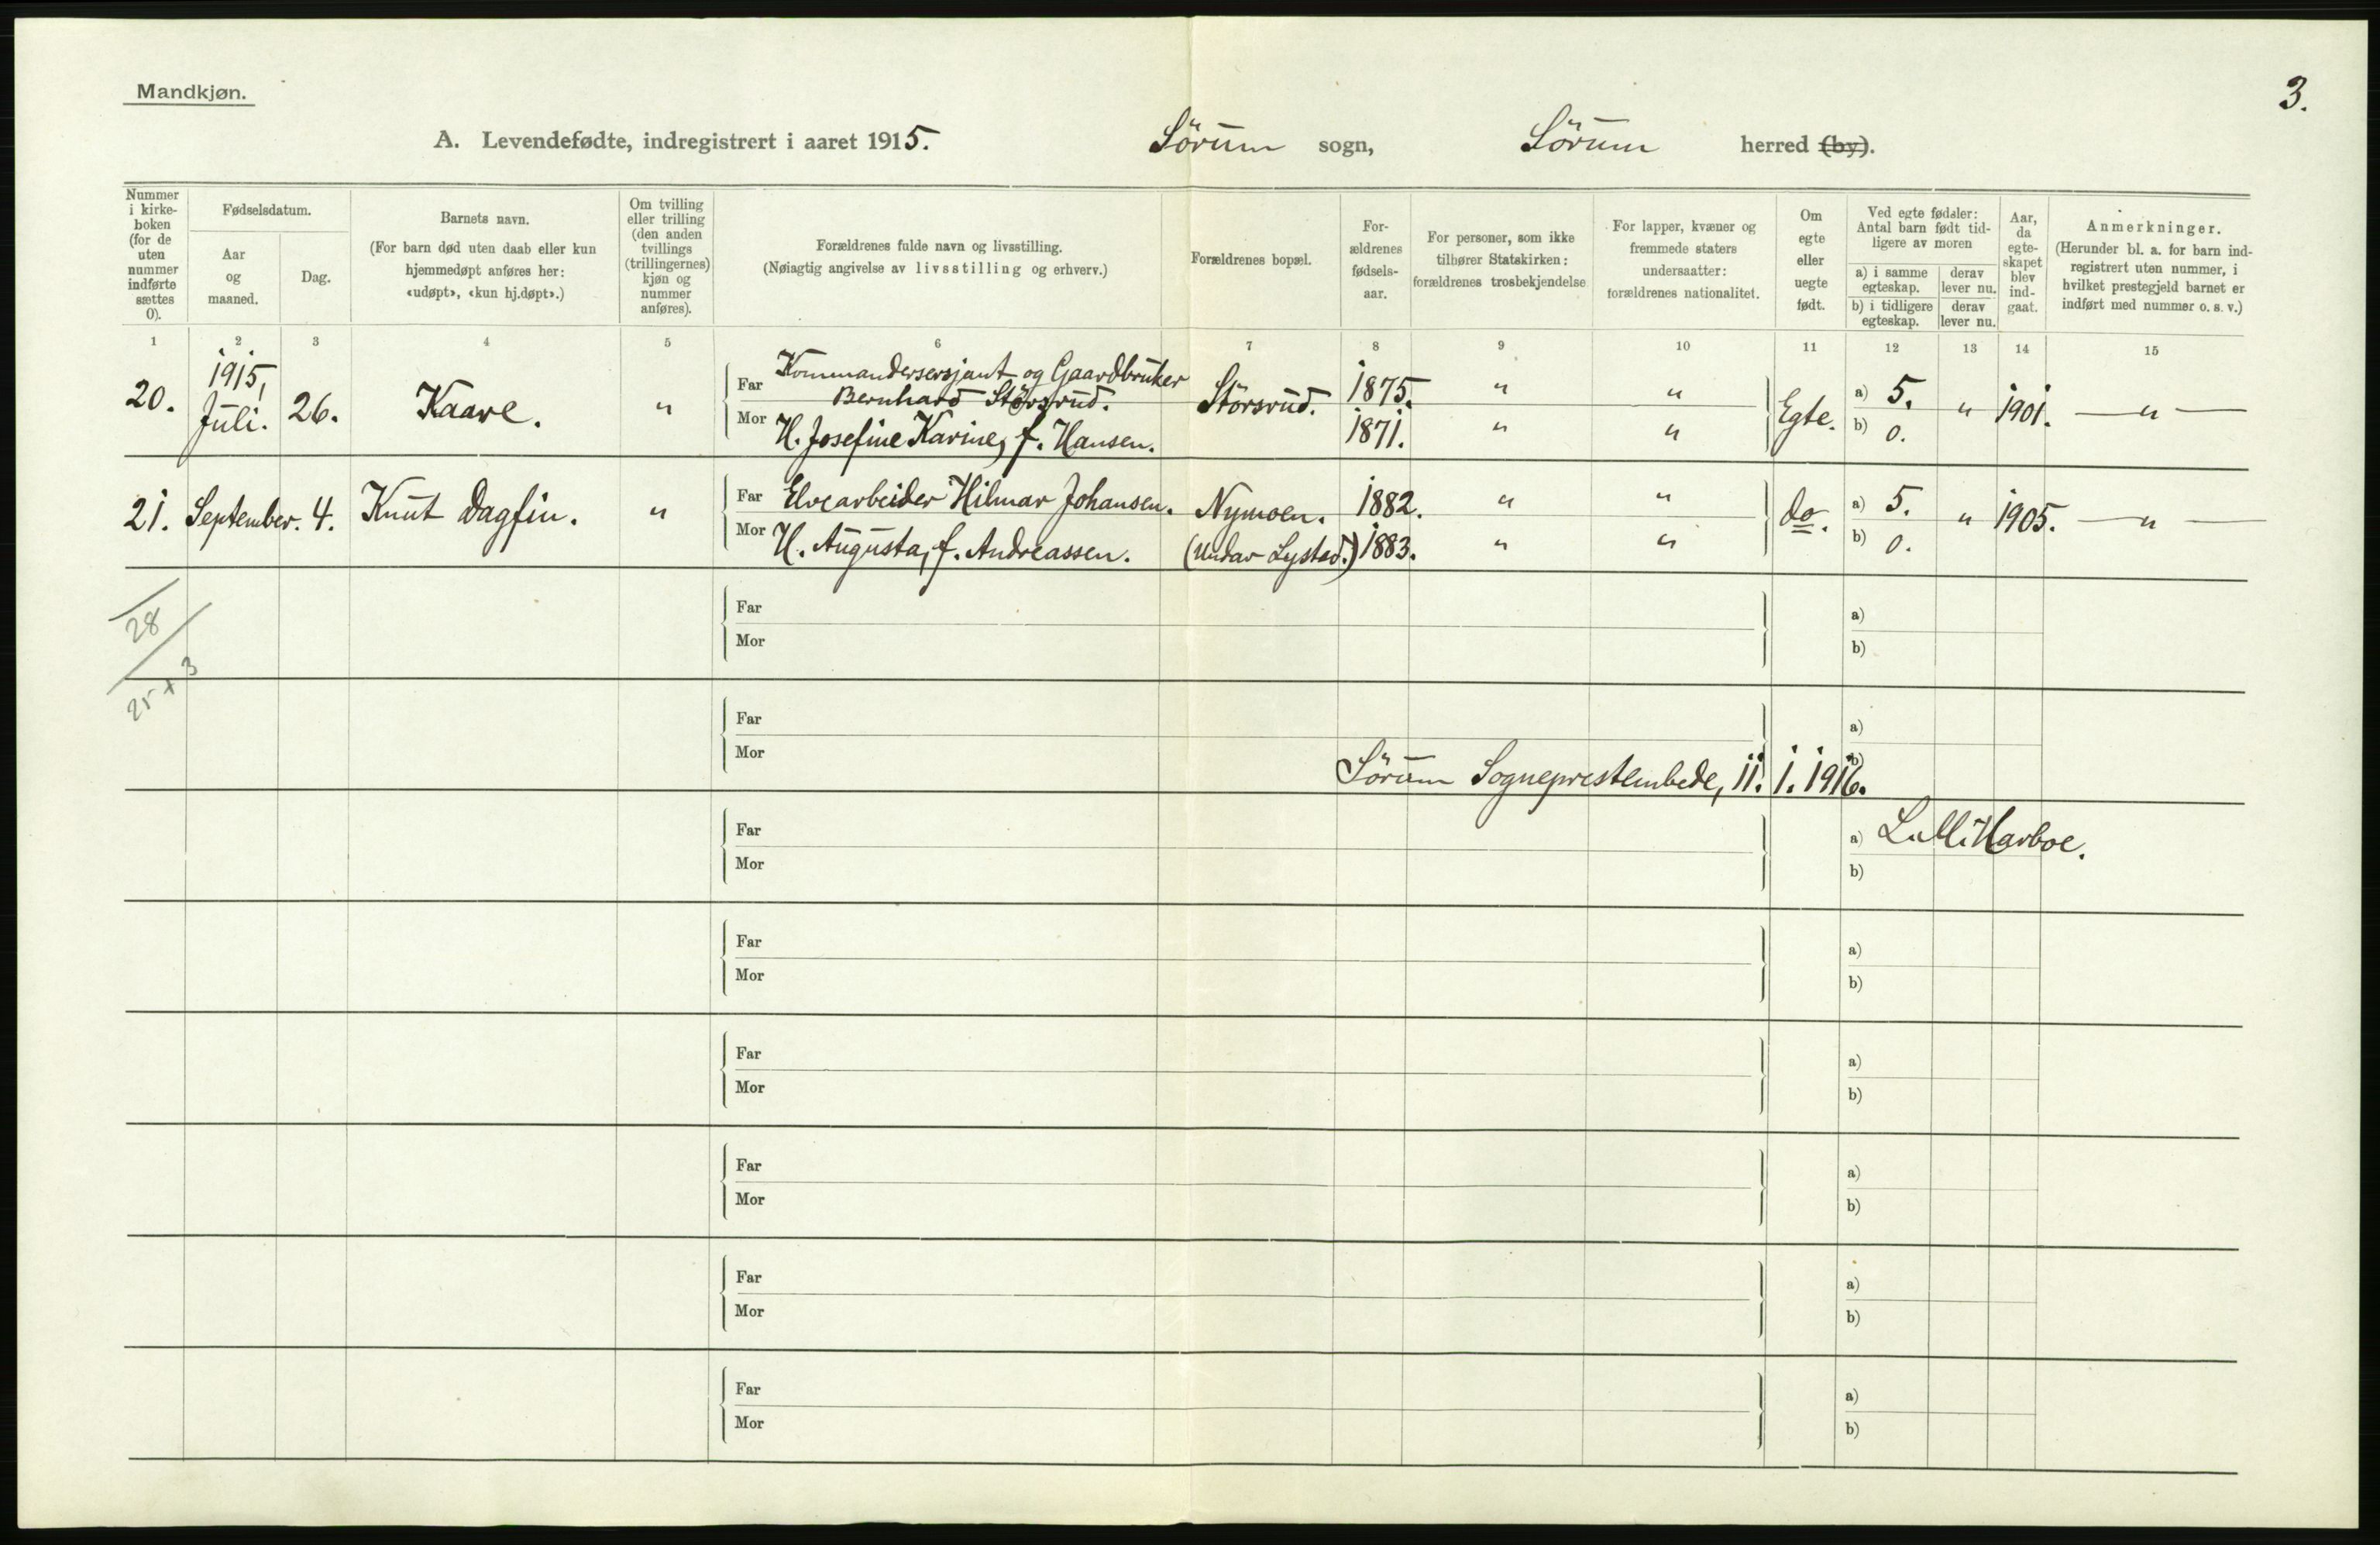 3.
Mandkjøn.
A. Levendefødte, indregistrert i aaret 1915. Sörum sogn, Sörum herred (by).
Nummer i kirke-boken (for de uten nummer indførte sættes 0).
Fødselsdatum.
Aar og maaned.
Dag.
Barnets navn.
(For barn død uten daab eller kun hjemmedøpt anføres her: «udøpt», «kun hj.døpt».)
Om tvilling eller trilling (den anden tvillings (trillingernes) kjøn og nummer anføres).
Forældrenes fulde navn og livsstilling.
(Nøiagtig angivelse av livsstilling og erhverv.)
Forældrenes bopæl.
For-ældrenes fødsels-aar.
For personer, som ikke tilhører Statskirken: forældrenes trosbekjendelse
For lapper, kvæner og fremmede staters undersaatter: forældrenes nationalitet.
Om egte eller uegte født.
Ved egte fødsler: Antal barn født tid-ligere av moren
a) i samme egteskap.
derav lever nu.
b) i tidligere egteskap.
derav lever nu.
Aar, da egte-skapet blev ind-gaat.
Anmerkninger.
(Herunder bl. a. for barn ind-registrert uten nummer, i hvilket prestegjeld barnet er indført med nummer o. s. v.)
1 2 3 4 5 6 7 8 9 10 11 12 13 14 15
20. 1915, Juli. 26. Kaare. "
Far Kommandersersjant og Gaardbruker
Bernhard Störsrud. Störsrud. 1875. " "
Mor H. Josefine Karine, f. Hansen. 1871. " "
Egte. a) 5. b) 0. " 1901. — " —
21. September. 4. Knut Dagfin. "
Far Elvearbeider Hilmar Johansen. Nymoen. 1882. " "
Mor H. Augusta, f. Andreassen. (under Lystad.) 1883. " "
do. a) 5. b) 0. " 1905. — " —
28
25 + 3
Far a)
Mor b)
Far a)
Mor b)
Sörum Sogneprestembede, 11. 1. 1916.
Far a)
Mor b)
Harboe.
Far a)
Mor b)
Far a)
Mor b)
Far a)
Mor b)
Far a)
Mor b)
Far a)
Mor b)